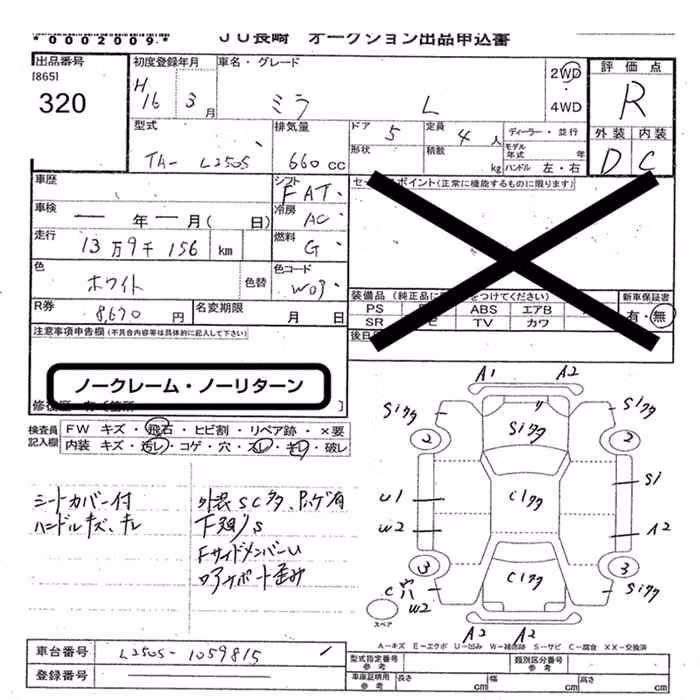 *0002009*
JU長崎 オークション出品申込書
出品番号
[865]
320
初度登録年月
H16 3月
車名・グレード
ミラ L
2WD
4WD
評価点
R
外装 内装
D C
型式
TA- L250S
排気量
660cc
ドア 5
定員 4人
ディーラー・並行
形状
積数 kg
モデル年式 年
ハンドル 左・右
車歴
シフト
FAT
セールスポイント(正常に機能するものに限ります)
車検
年 月( 日)
冷房
AC
走行
13万9千156 km
燃料
G
色
ホワイト
色替
色コード
W09
R券
8,670円
名変期限 月 日
装備品
PS ABS エアB
SR TV カワ
新車保証書
有・無
注意事項申告欄(不具合内容等は具体的に記入して下さい)
ノークレーム・ノーリターン
検査員記入欄
FW キズ・飛石・ヒビ割・リペア跡・×要
内装 キズ・汚レ・コゲ・穴・スレ・キレ・破レ
シートカバー付
ハンドルキズ、キレ
外装SC多、
下廻りS
FサイドメンバーU
コアサポート歪み
A1 A2
Siクク Siクク Siクク
2 2
U1 Clクク S1
W2 A2
3 Clクク 3
C穴 Siクク
W2
スペア
A2 A2
A-キズ E-エクボ U-凹み W-補修跡 S-サビ C-腐食 XX-交換済
車台番号
L250S-1059815
登録番号
型式指定番号 参考
類別区分番号 参考
車庫証明用 参考
長さ cm
幅 cm
高さ cm